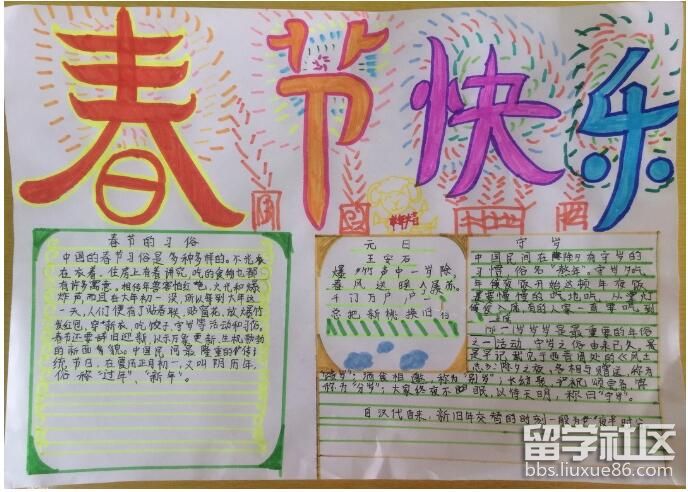 春节快乐
春节的习俗
中国的春节习俗是多种多样的。不光衣
在衣着、住房上有着讲究，吃的食物也都
有许多寓意。相传年兽害怕红色、火光和爆
炸声，而且在大年初一没，所以每到大年这
一天，人们便有了贴春联、贴窗花、放爆竹
发红包、穿新衣、吃饺子、守岁等活动和习俗
春节还要辞旧迎新，以示万象更新、生机勃勃
的新面貌。中国民间最隆重的传
统节日，在夏历正月初一，又叫阴历年，
俗称"过年"、"新年"。
元日
王安石
爆竹声中一岁除，
春风送暖入屠苏。
千门万户
总把新桃换旧符
守岁
中国民间在除夕有守岁的
习惯，俗名"熬年"。守岁
年夜饭开始，这顿年夜饭
要慢慢的吃，从掌灯
时分入席，有的人家一直要吃到
深夜
守岁是最重要的年俗
之一活动，守岁之俗由来已久。最
早记载见于西晋周处的《风土
志》：除夕之夜，各相与赠送，称为
"馈岁"；酒食相邀，称为"别岁"；长幼聚饮，祝颂完备，
称为"分岁"；大家终夜不眠，以待天明，称曰"守岁"。
自汉代以来，新旧年交替的时刻一般为夜半时分
留学社区
bbs.liuxue86.com